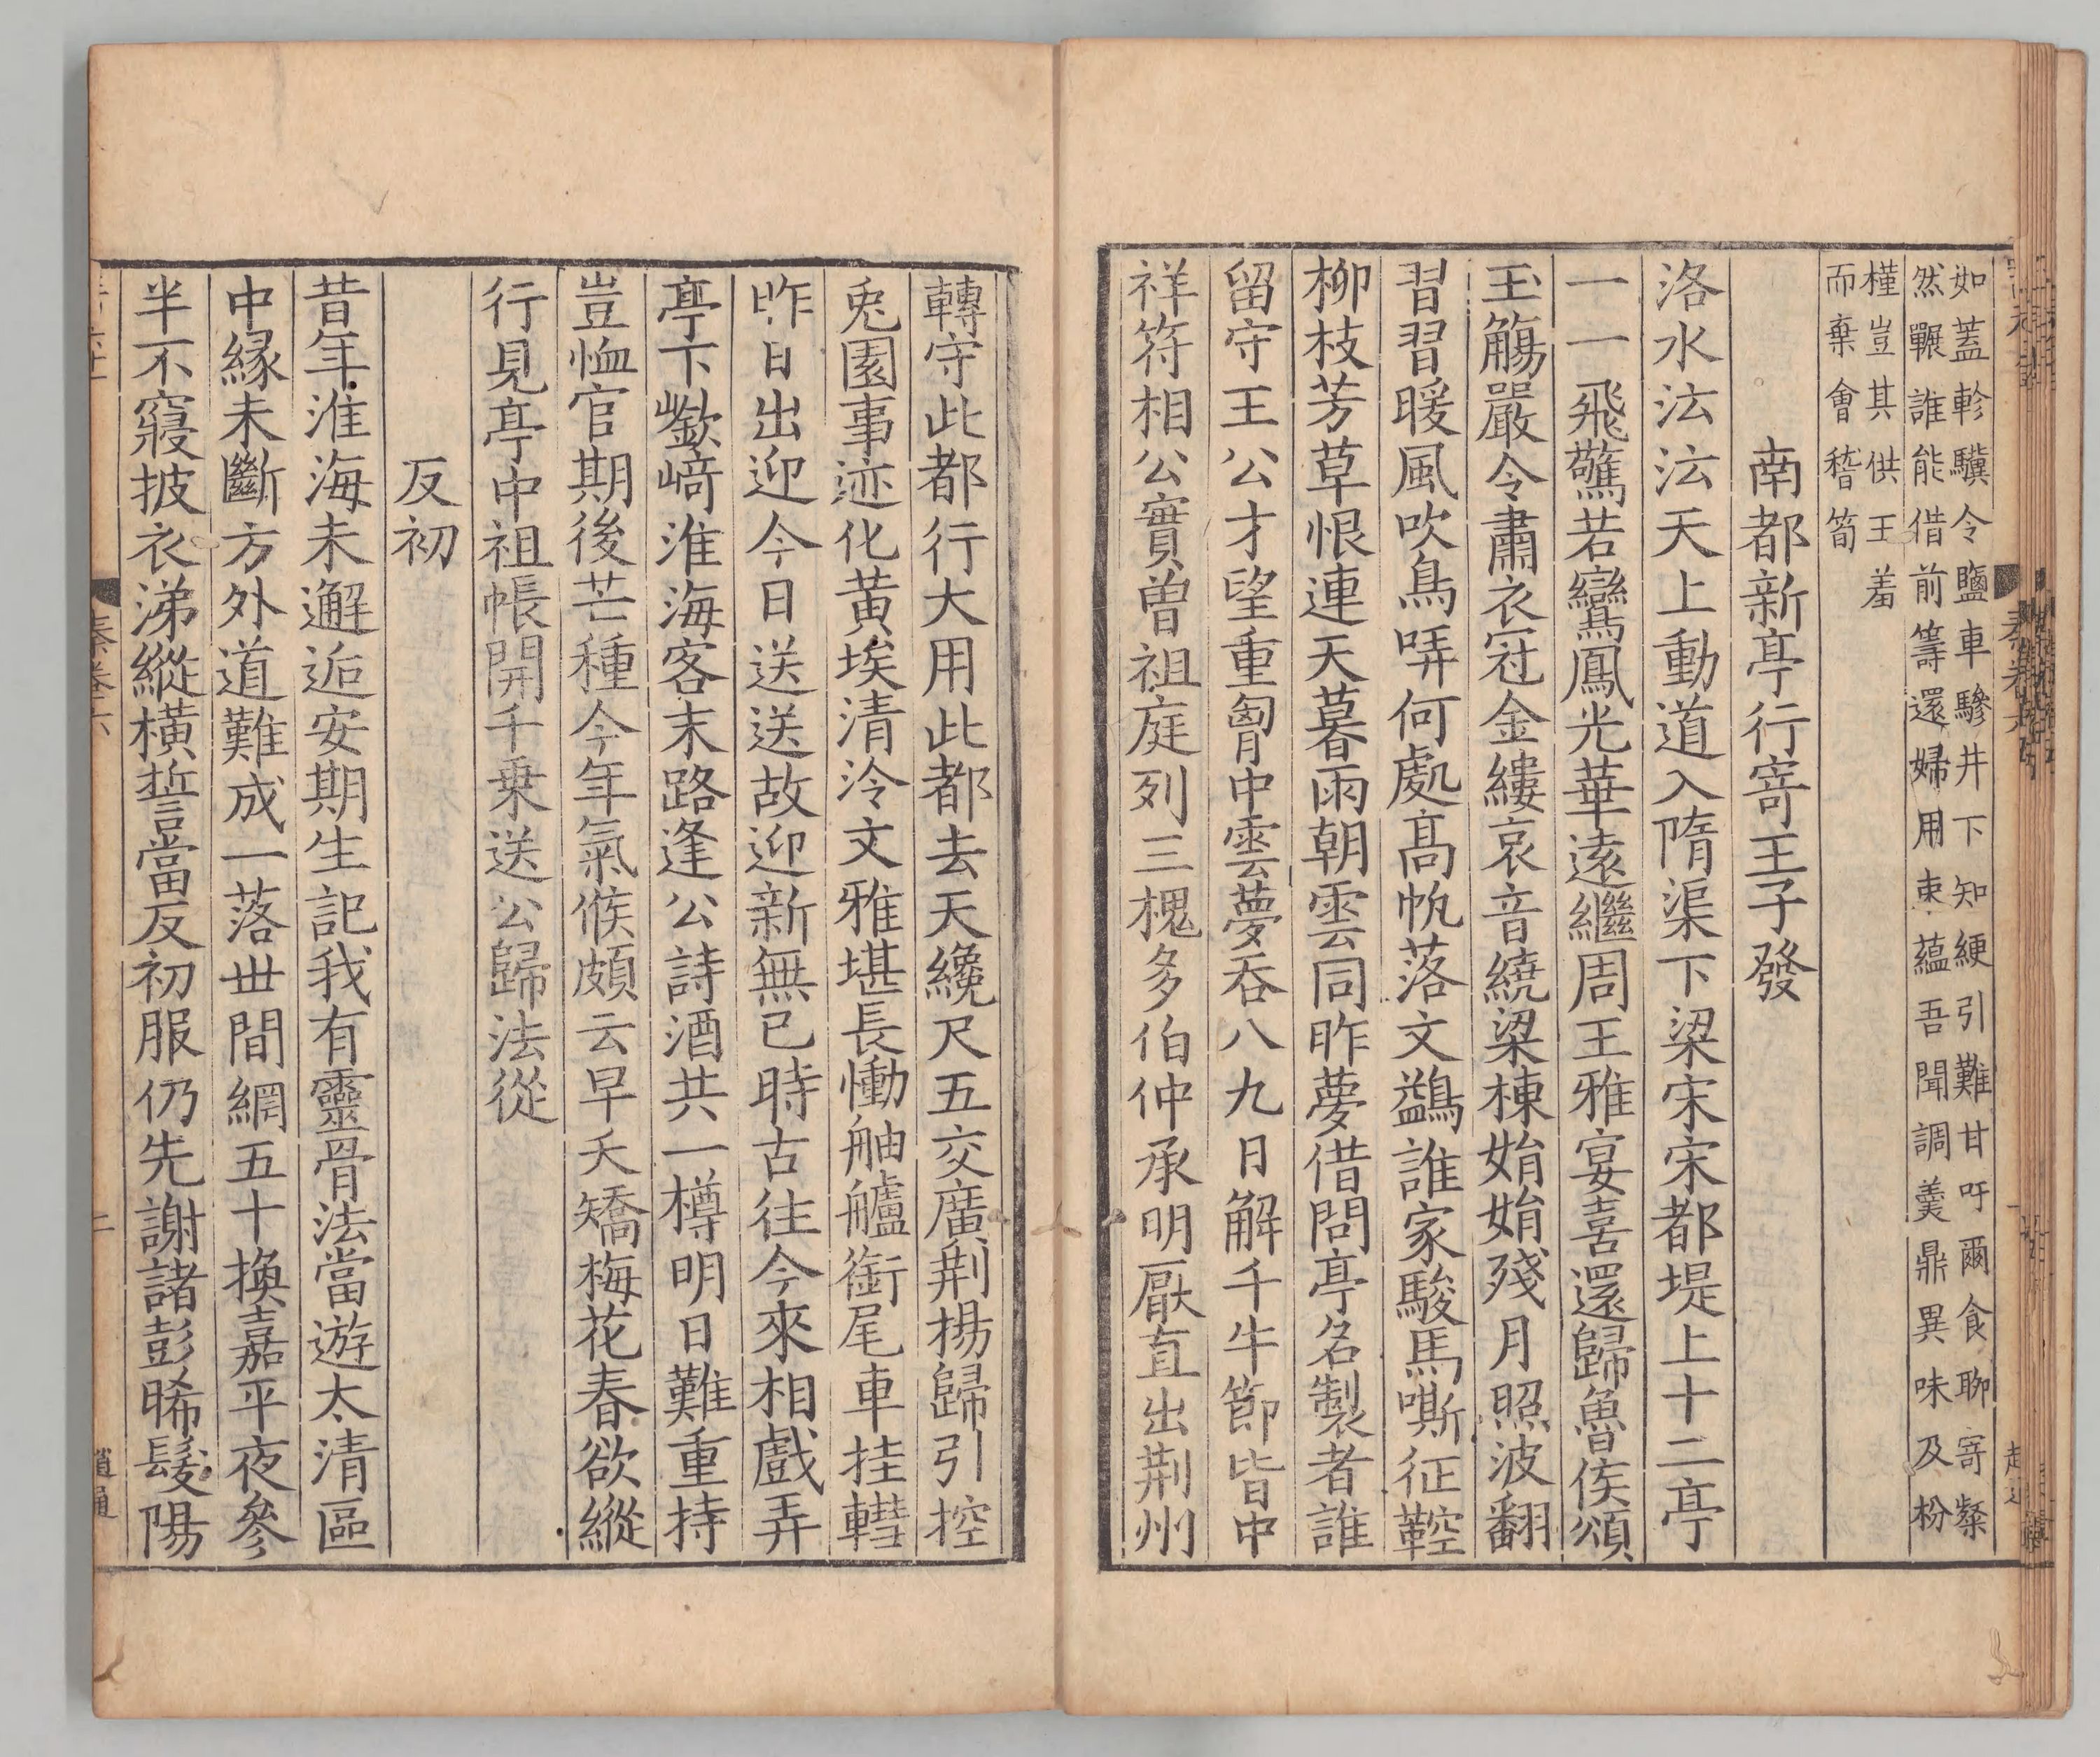 如蓋軫驥令鹽車驂井下知綆引難甘吁爾食聊寄粲
然囅誰能借前籌還婦用束蘊吾聞調羹鼎異味及枌
槿豈其供王羞
而棄會稽筍
南都新亭行寄王子發
洛水泫泫天上動道入隋渠下梁宋宋都堤上十二亭
一一飛驚若鸞鳳光華遠繼周王雅宴喜還歸魯侯頌
玉觴嚴令肅衣冠金縷哀音繞梁棟娟娟殘月照波翻
習習暖風吹鳥哢何處高帆落文鷁誰家駿馬嘶征鞚
柳枝芳草恨連天暮雨朝雲同昨夢借問亭名製者誰
留守王公才望重胷中雲夢吞八九日解千牛節皆中
祥符相公實曾祖庭列三槐多伯仲承明厭直出荆州
轉守此都行大用此都去天纔尺五交廣荆楊歸引控
兎園事迹化黃埃清泠文雅堪長慟舳艫銜尾車挂轊
昨日出迎今日送送故迎新無已時古往今來相戲弄
亭下嶔﨑淮海客末路逢公詩酒共一樽明日難重持
豈恤官期後芒種今年氣候頗云早夭矯梅花春欲縱
行見亭中祖帳開千乗送公歸法從
反初
昔年淮海未邂逅安期生記我有靈骨法當遊太清區
中緣未斷方外道難成一落丗間網五十換嘉平夜參
半不寢披衣涕縱橫誓當反初服仍先謝諸彭晞髮陽
秦卷六
二